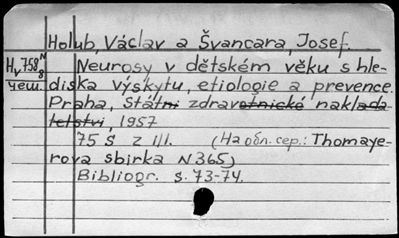 Holub, Václav a Švancara, Josef.
Neurosy v dětském věku s hle-
diska výskytu, etiologie a prevence.
Praha, Státní zdravotnické naklada
telství, 1957
75 s z ill. (На обл. сер.: Thomaye-
rova sbirka N365)
Bibliogr. s. 73-74.
Hv 758 N
8
чеш.